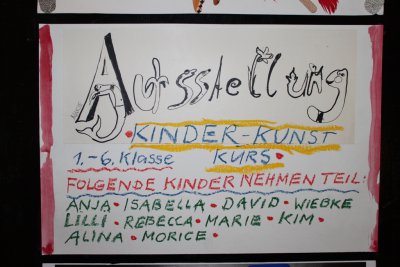 Ausstellung
• KINDER-KUNST
1.-6. Klasse KURS •
FOLGENDE KINDER NEHMEN TEIL:
ANJA • ISABELLA • DAVID • WIEBKE
LILLI • REBECCA • MARIE • KIM •
ALINA • MORICE •